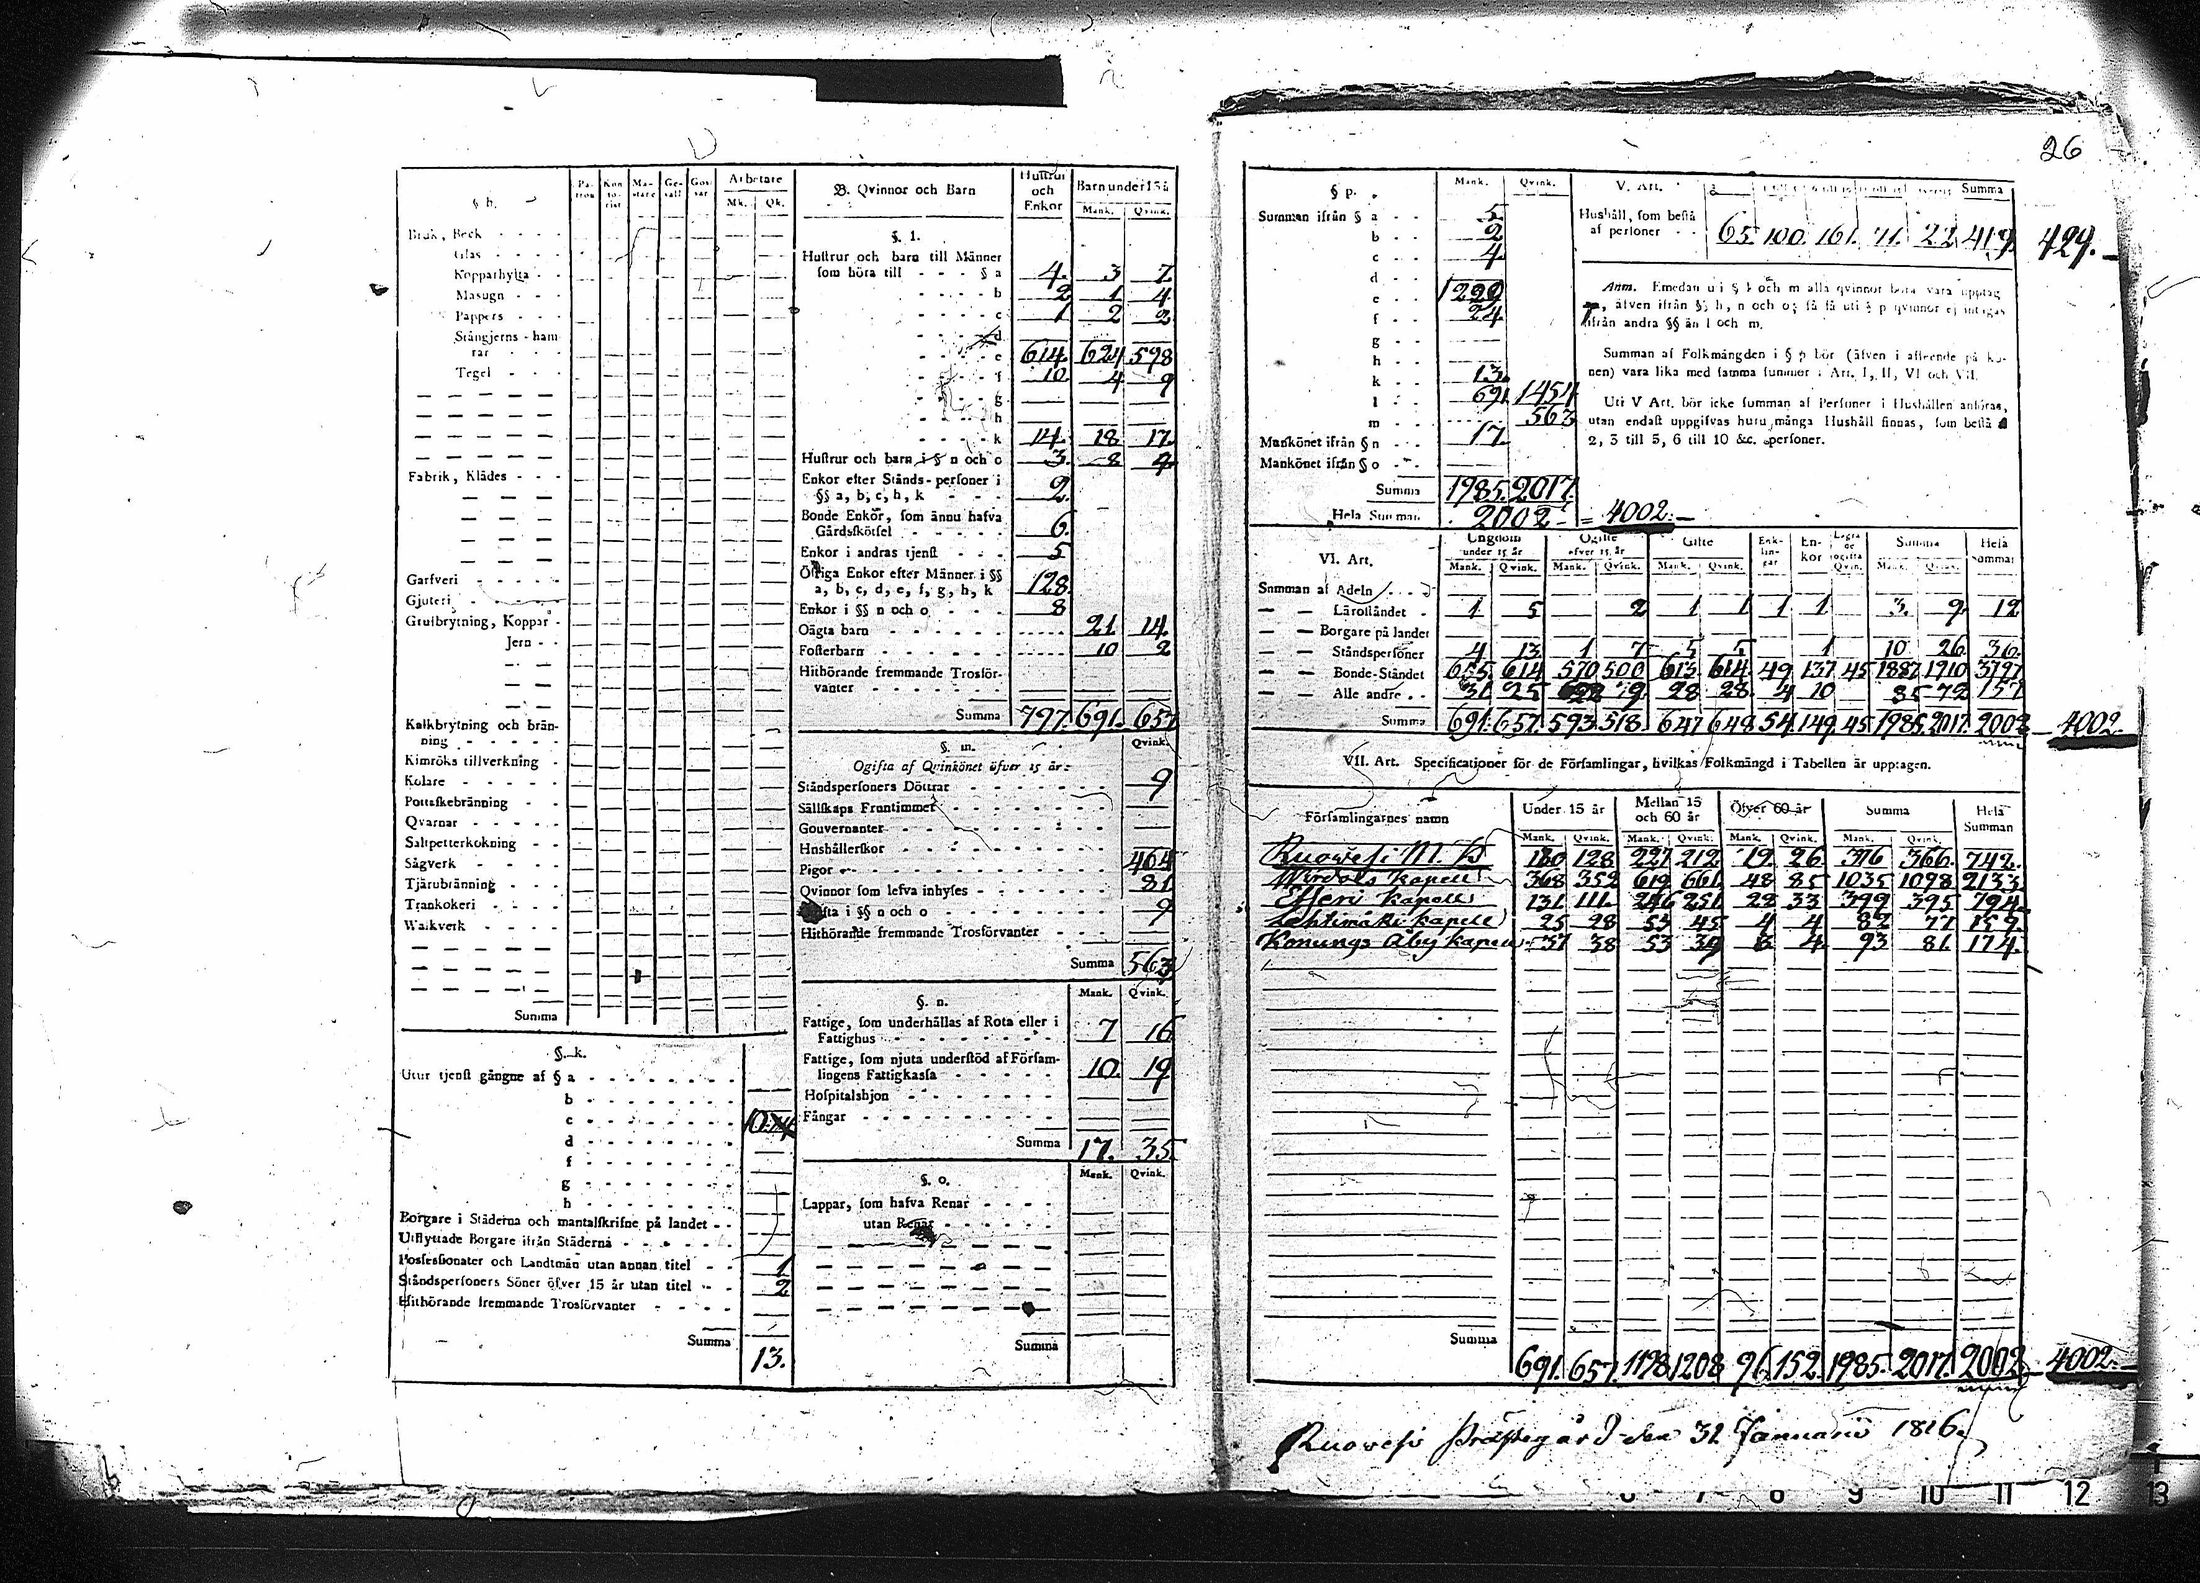 26
§ h.
Arbetare
Mk. Qk.
Bruk, Beck
Glas
Kopparhytta
Masugn
Pappers
Stångjerns-ham
rar
Tegel
Fabrik, Klädes
Garfveri
Gjuteri
Grufbrytning, Koppar
Jern
Kalkbrytning och brän-
ning
Kimröks tillverkning
Kolare
Pottaskebränning
Qvarnar
Saltpetterkokning
Sågverk
Tjärubränning
Trankokeri
Waikverk
Summa
§. k.
Utur tjenst gångne af § a
b
c 10
d
f
g
h
Borgare i Städerna och mantalskrifne på landet
Utflyttade Borgare ifrån Städerna
Possessionater och Landtmän utan annan titel 1
Ståndspersoners Söner öfver 15 år utan titel 2
Hithörande fremmande Trosförvanter
Summa 13.
B. Qvinnor och Barn Hustrur och Enkor Barn under 15 å
Mank. Qvink.
§. l.
Hustrur och barn till Män­ner
som höra till § a 4. 3 7.
b 2 1 4
c 1 2 2
d
e 614. 624 598
f 10. 4 9
g
h
k 14. 18 17.
Hustrur och barn i § n och o 3. 8 4
Enkor efter Stånds-personer i
§§ a, b, c, h, k 2.
Bonde Enkor, som ännu hafva
Gårdsskötsel 6.
Enkor i andras tjenst 5
Öfriga Enkor efter Männer i §§
a, b, c, d, e, f, g, h, k 128.
Enkor i §§ n och o 8
Oägta barn 21 14.
Fosterbarn 10 2
Hithörande fremmande Trosför-
vanter
Summa 797. 691. 657
§. m. Qvink.
Ogifta af Qvinkönet öfver 15 år:
Ståndspersoners Döttrar 9
Sällskaps Fruntimmer
Gouvernanter
Hushållerskor
Pigor 464
Qvinnor som lefva inhyses 81
Ogifta i §§ n och o 9
Hithörande fremmande Trosförvanter
Summa 563
§. n. Mank. Qvink.
Fattige, som underhållas af Rota eller i
Fattighus 7 16
Fattige, som njuta understöd af Försam-
lingens Fattigkassa 10. 19
Hospitalshjon
Fångar
Summa 17. 35.
§. o. Mank. Qvink.
Lappar, som hafva Renar
utan Renar
Summa
§ p. Mank. Qvink.
Summan ifrån § a 5
b 2
c 4
d
e 1229
f 24.
g
h
k 13.
l 691. 1454
m 563
Mankönet ifrån § n 17.
Mankönet ifrån § o
Summa 1985. 2017.
Hela Summan 2002 = 4002.
V. Art. Summa
Hushåll, som bestå
af personer 65. 100. 161. 71. 22 419. 429.
Anm. Emedan uti § l och m alla qvinnor böra vara upptag
, äfven ifrån §§ h, n och o; så få uti § p qvinnor ej intagas
ifrån andra §§ än l och m.
Summan af Folkmängden i § p bör (äfven i afseende på kö-
nen) vara lika med samma summor i Art. I, II, VI och VII.
Uti V Art. bör icke summan af Personer i Hushållen anföras,
utan endast uppgifvas huru många Hushåll finnas, som bestå a
2, 3 till 5, 6 till 10 &c. personer.
VI. Art. Ungdom under 15 år Ogifte öfver 15 år Gifte Enk-lin-gar En-kor Summa Hela Summan
Mank. Qvink. Mank. Qvink. Mank. Qvink. Qvin. Mank. Qvink.
Summan af Adeln
Läroståndet 1 5 2 1 1 1 1 3. 9. 12
Borgare på landet
Ståndspersoner 4 13. 1 7 5 5. 1 10 26. 36.
Bonde-Ståndet 655. 614 570 500 613. 614 49 137. 45 1887 1910 3797
Alle andre 31. 25 9 28 28. 4 10 85 72 157
Summa 691. 657. 593 518. 647 648 54 149. 45 1985. 2017. 2002 4002.
VII. Art. Specificationer för de Församlingar, hvilkas Folkmängd i Tabellen är upptagen.
Församlingarnes namn Under 15 år Mellan 15 och 60 år Öfver 60 år Summa Hela Summan
Mank. Qvink. Mank. Qvink. Mank. Qvink. Mank. Qvink.
Ruowesi M. K 130 128 227 212 19. 26. 376 366. 742.
Wirdois Kapell 368 352 619 661. 48 85 1035 1098 2133
Etseri Kapell 131. 111. 246 251 28 33 399 395 794.
Lehtimäki Kapell 25 28 53 45 4 4 82 77 159.
Konungs Åby Kapell 37 38 53 39 3 4 93 81. 174.
Summa 691. 657. 1198 1208 96 152. 1985. 2017. 2002 4002.
Ruowesi Prästegård den 31 Januarii 1816.
6 7 8 9 10 11 12 13